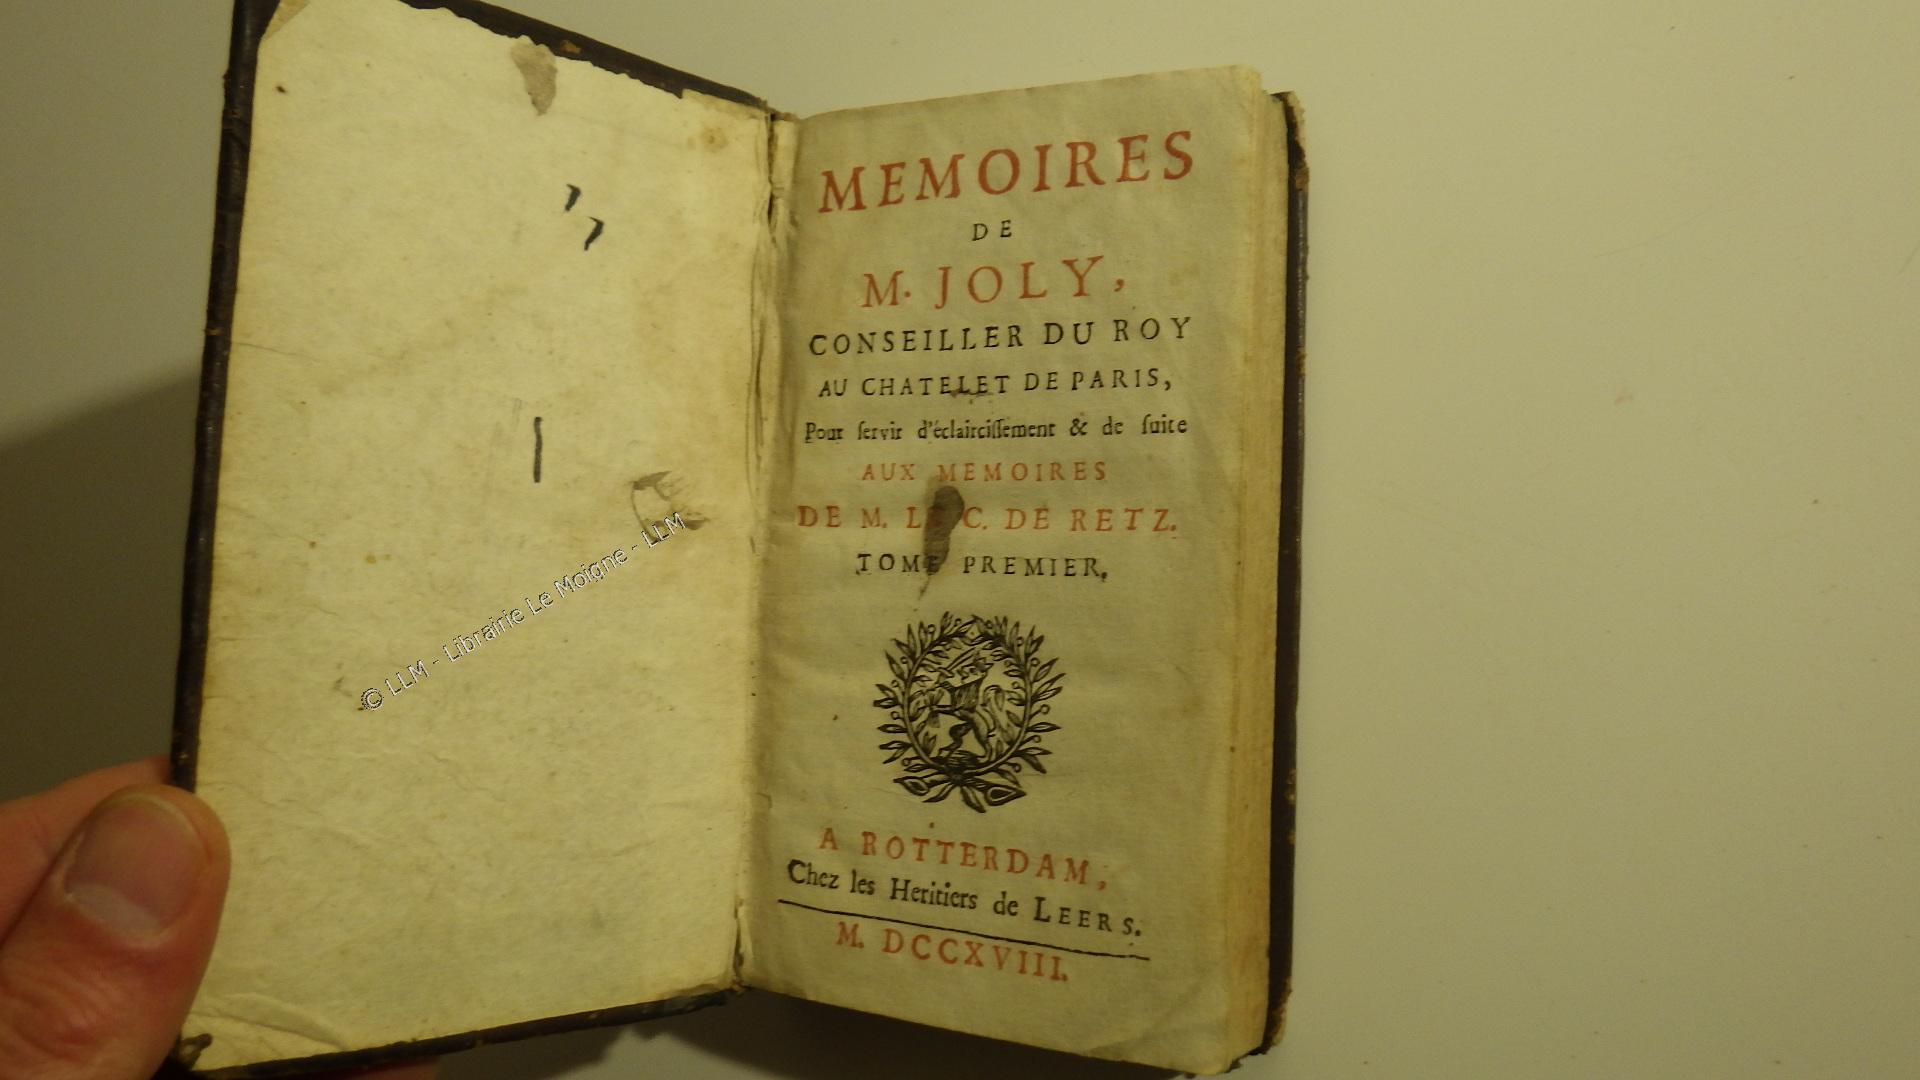 MEMOIRES
DE
M. JOLY,
CONSEILLER DU ROY
AU CHATELET DE PARIS,
Pour ſervir d'éclairciſſement & de ſuite
AUX MEMOIRES
DE M. LE C. DE RETZ.
TOME PREMIER.
A ROTTERDAM,
Chez les Heritiers de LEERS.
M. DCCXVIII.
© LLM - Librairie Le Moigne - LLM